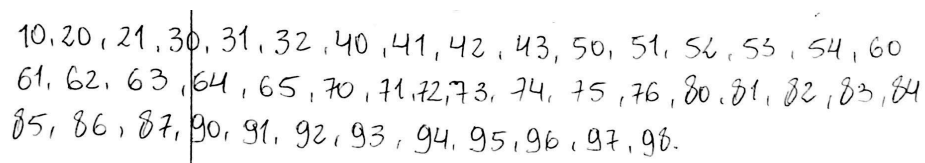 10, 20, 21, 30, 31, 32, 40, 41, 42, 43, 50, 51, 52, 53, 54, 60
61, 62, 63, 64, 65, 70, 71, 72, 73, 74, 75, 76, 80, 81, 82, 83, 84
85, 86, 87, 90, 91, 92, 93, 94, 95, 96, 97, 98.